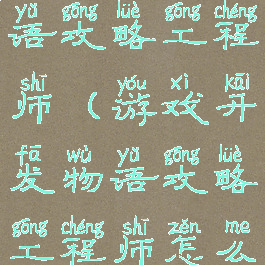 yǔ gōng lüè gōng chéng
语攻略工程
shī yóu xì kāi
师(游戏开
fā wù yǔ gōng lüè
发物语攻略
gōng chéng shī zěn me
工程师怎么